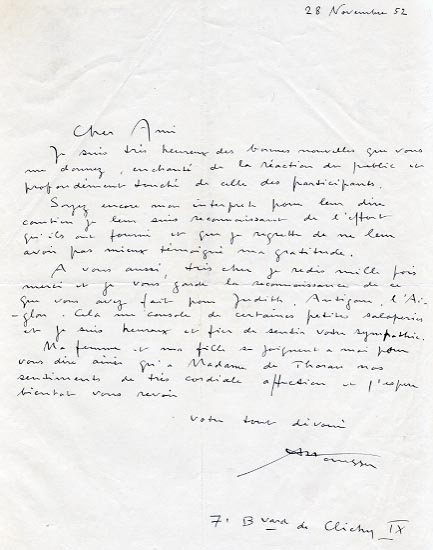 28 Novembre 52
Cher Ami
Je suis très heureux des bonnes nouvelles que vous
me donnez, enchanté de la réaction du public et
profondément touché de celle des participants.
Soyez encore mon interprete pour leur dire
combien je leur suis reconnaissant de l'effort
qu'ils ont fourni et que je regrette de ne leur
avoir pas mieux témoigné ma gratitude.
A vous aussi, très cher je redis mille fois
merci et je vous garde la reconnaissance de ce
que vous avez fait pour Judith, Antigone, l'Ai-
-glon. Cela me console de certaines petites saloperies
et je suis heureux et fier de sentir votre sympathie.
Ma femme et ma fille se joignent a moi pour
vous dire ainsi qu'a Madame de Thoran nos
sentiments de très cordiale affection et j'espere
bientot vous revoir
votre tout dévoué
71 Bvard de Clichy IX